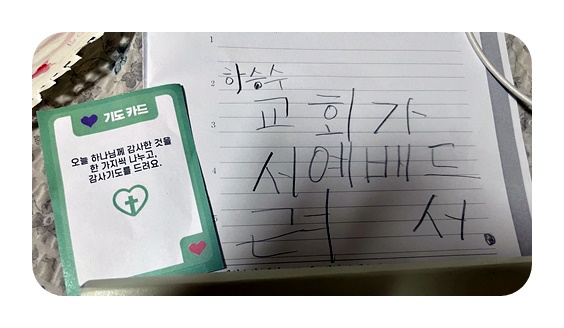 기도 카드
오늘 하나님께 감사한 것을
한 가지씩 나누고,
감사기도를 드려요.
1
2
3
4
하승수
교회가
서예배드
려 서